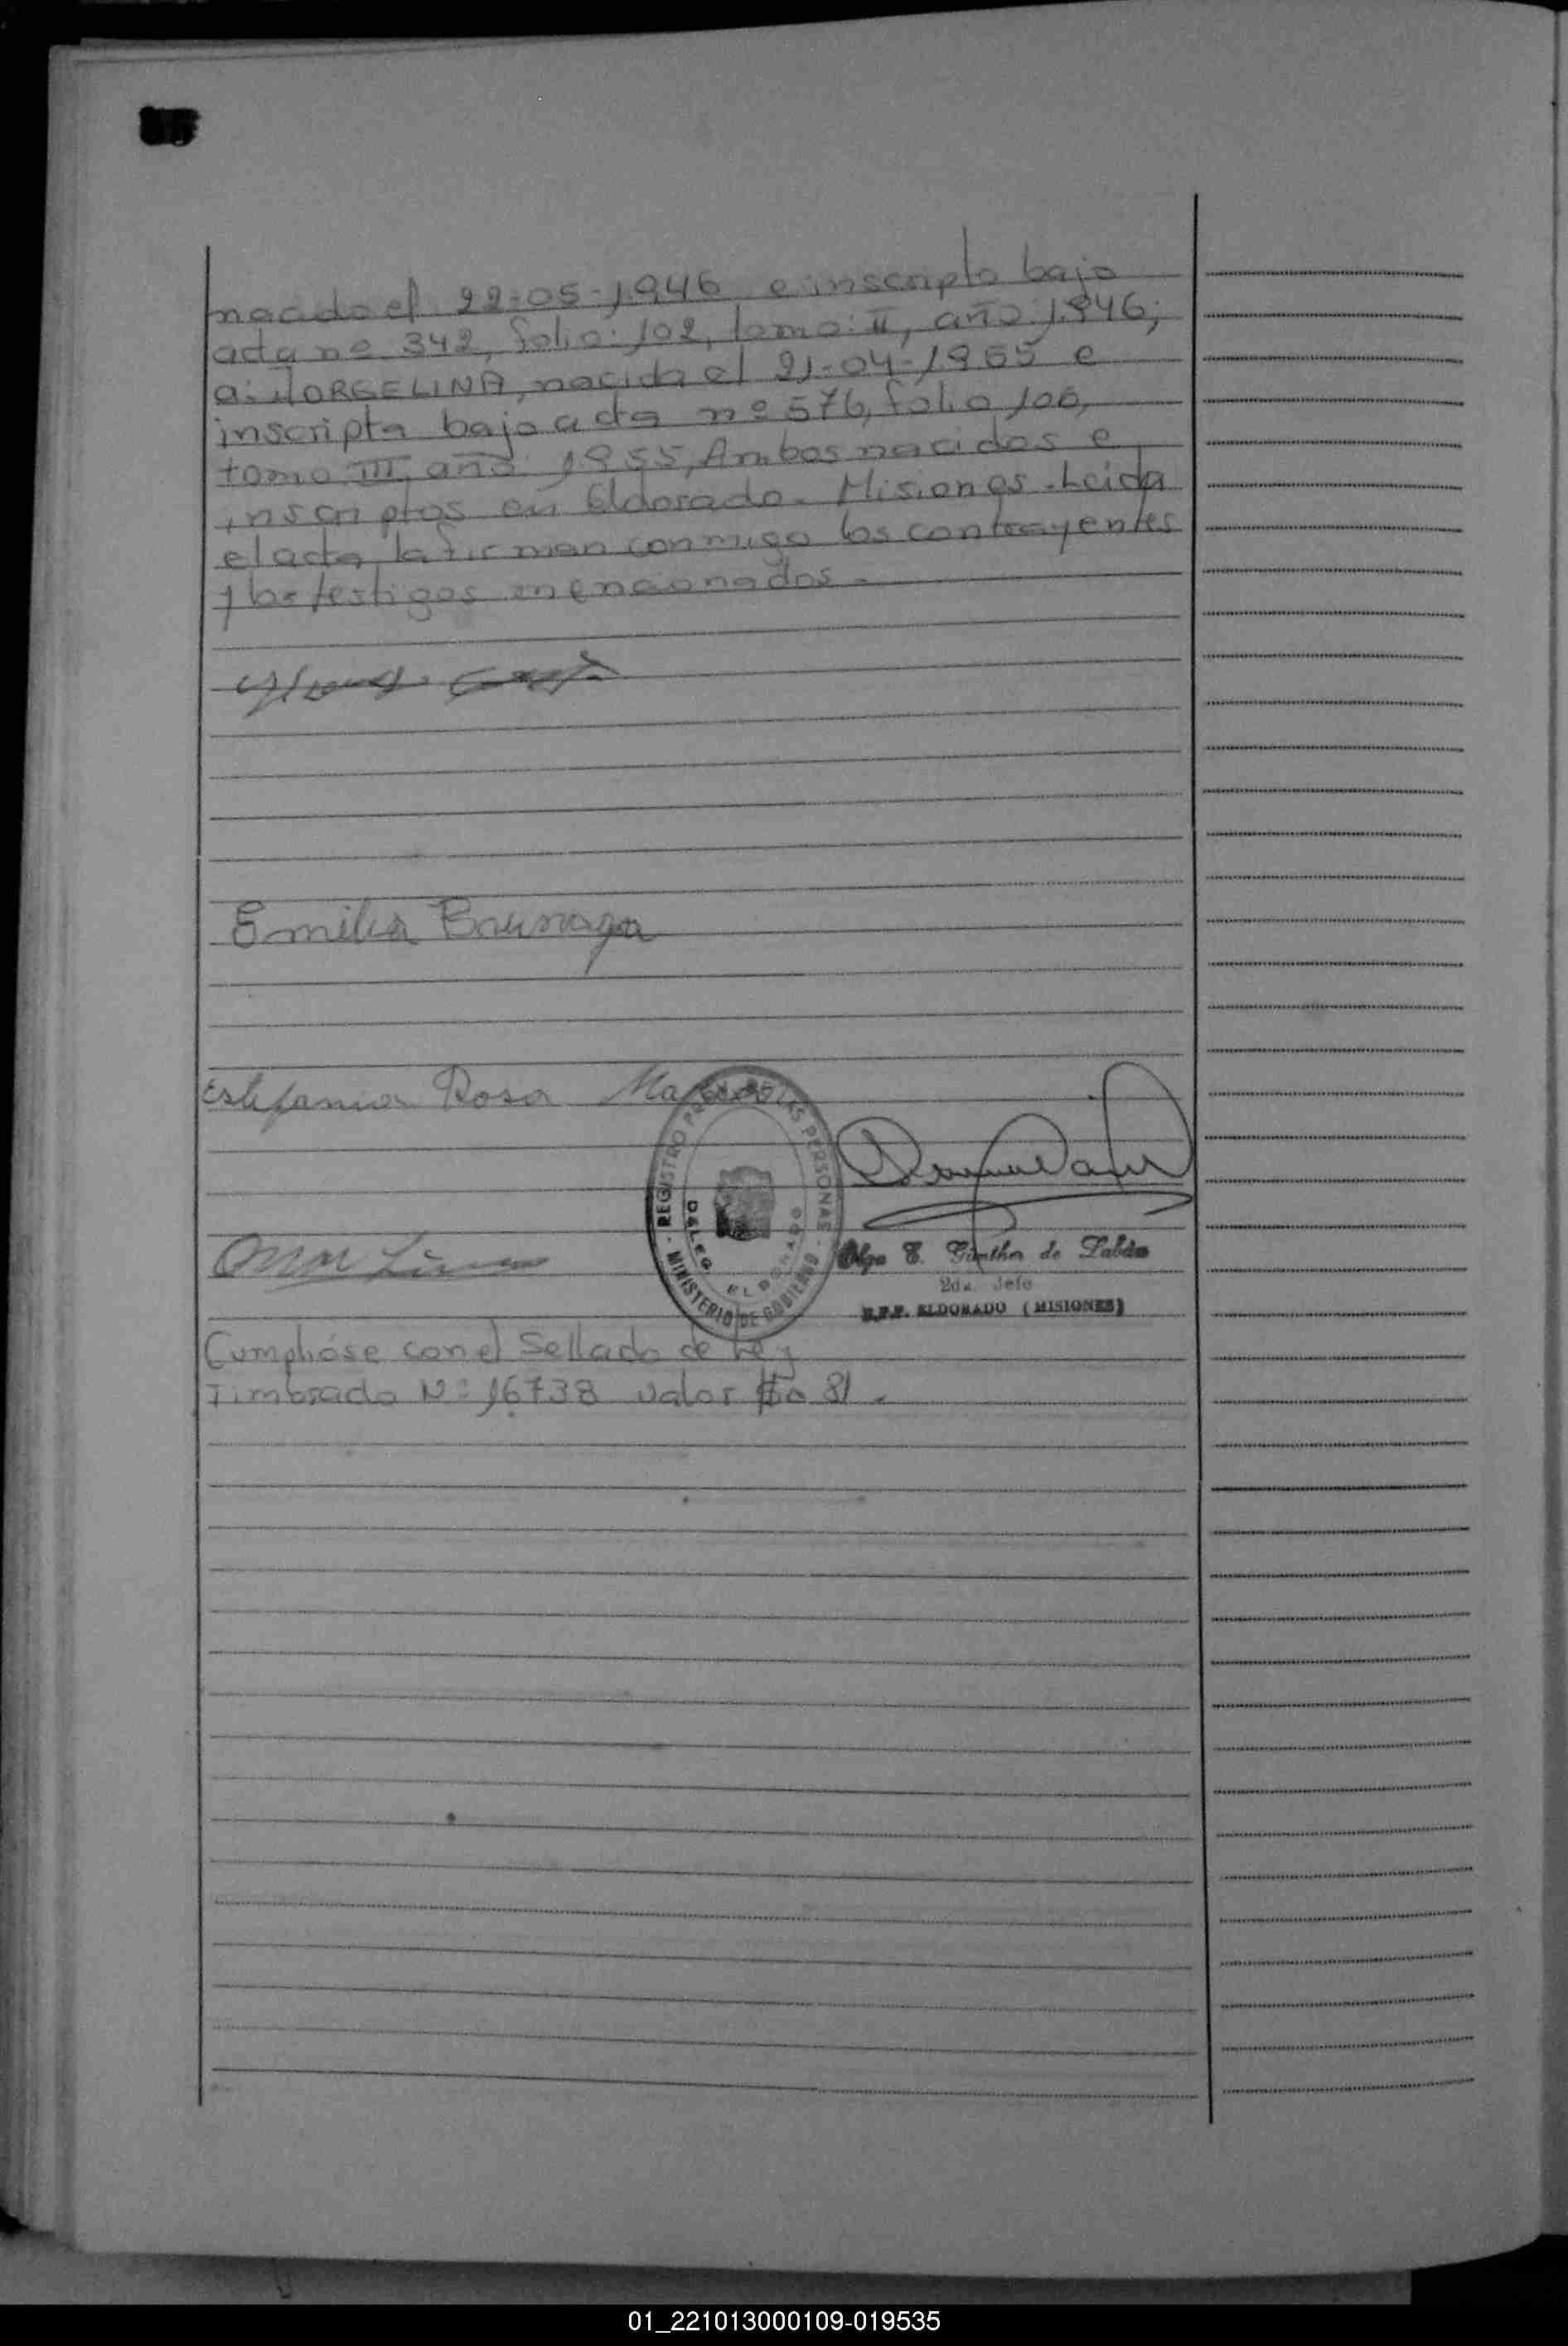 nacido el 22-05-1.946 e inscripto bajo
acta nº 342, folio: 102, tomo: II, año 1.946;
a: JORGELINA, nacida el 21-04-1.955 e
inscripta bajo acta nº 576, folio 106,
tomo III, año 1955, Ambos nacidos e
inscriptos en Eldorado. Misiones. Leida
el acta, la firman conmigo los contrayentes
y los testigos mencionados.-
Emilia
Estefania Rosa
REGISTRO PROV. DE LAS PERSONAS - MINISTERIO DE GOBIERNO -
DELEG. ELDORADO
Olga E. Günther de
2da. Jefe
R.P.P. ELDORADO (MISIONES)
Cumplióse con el Sellado de Ley
Timbrado Nº 16738 valor
01_221013000109-019535